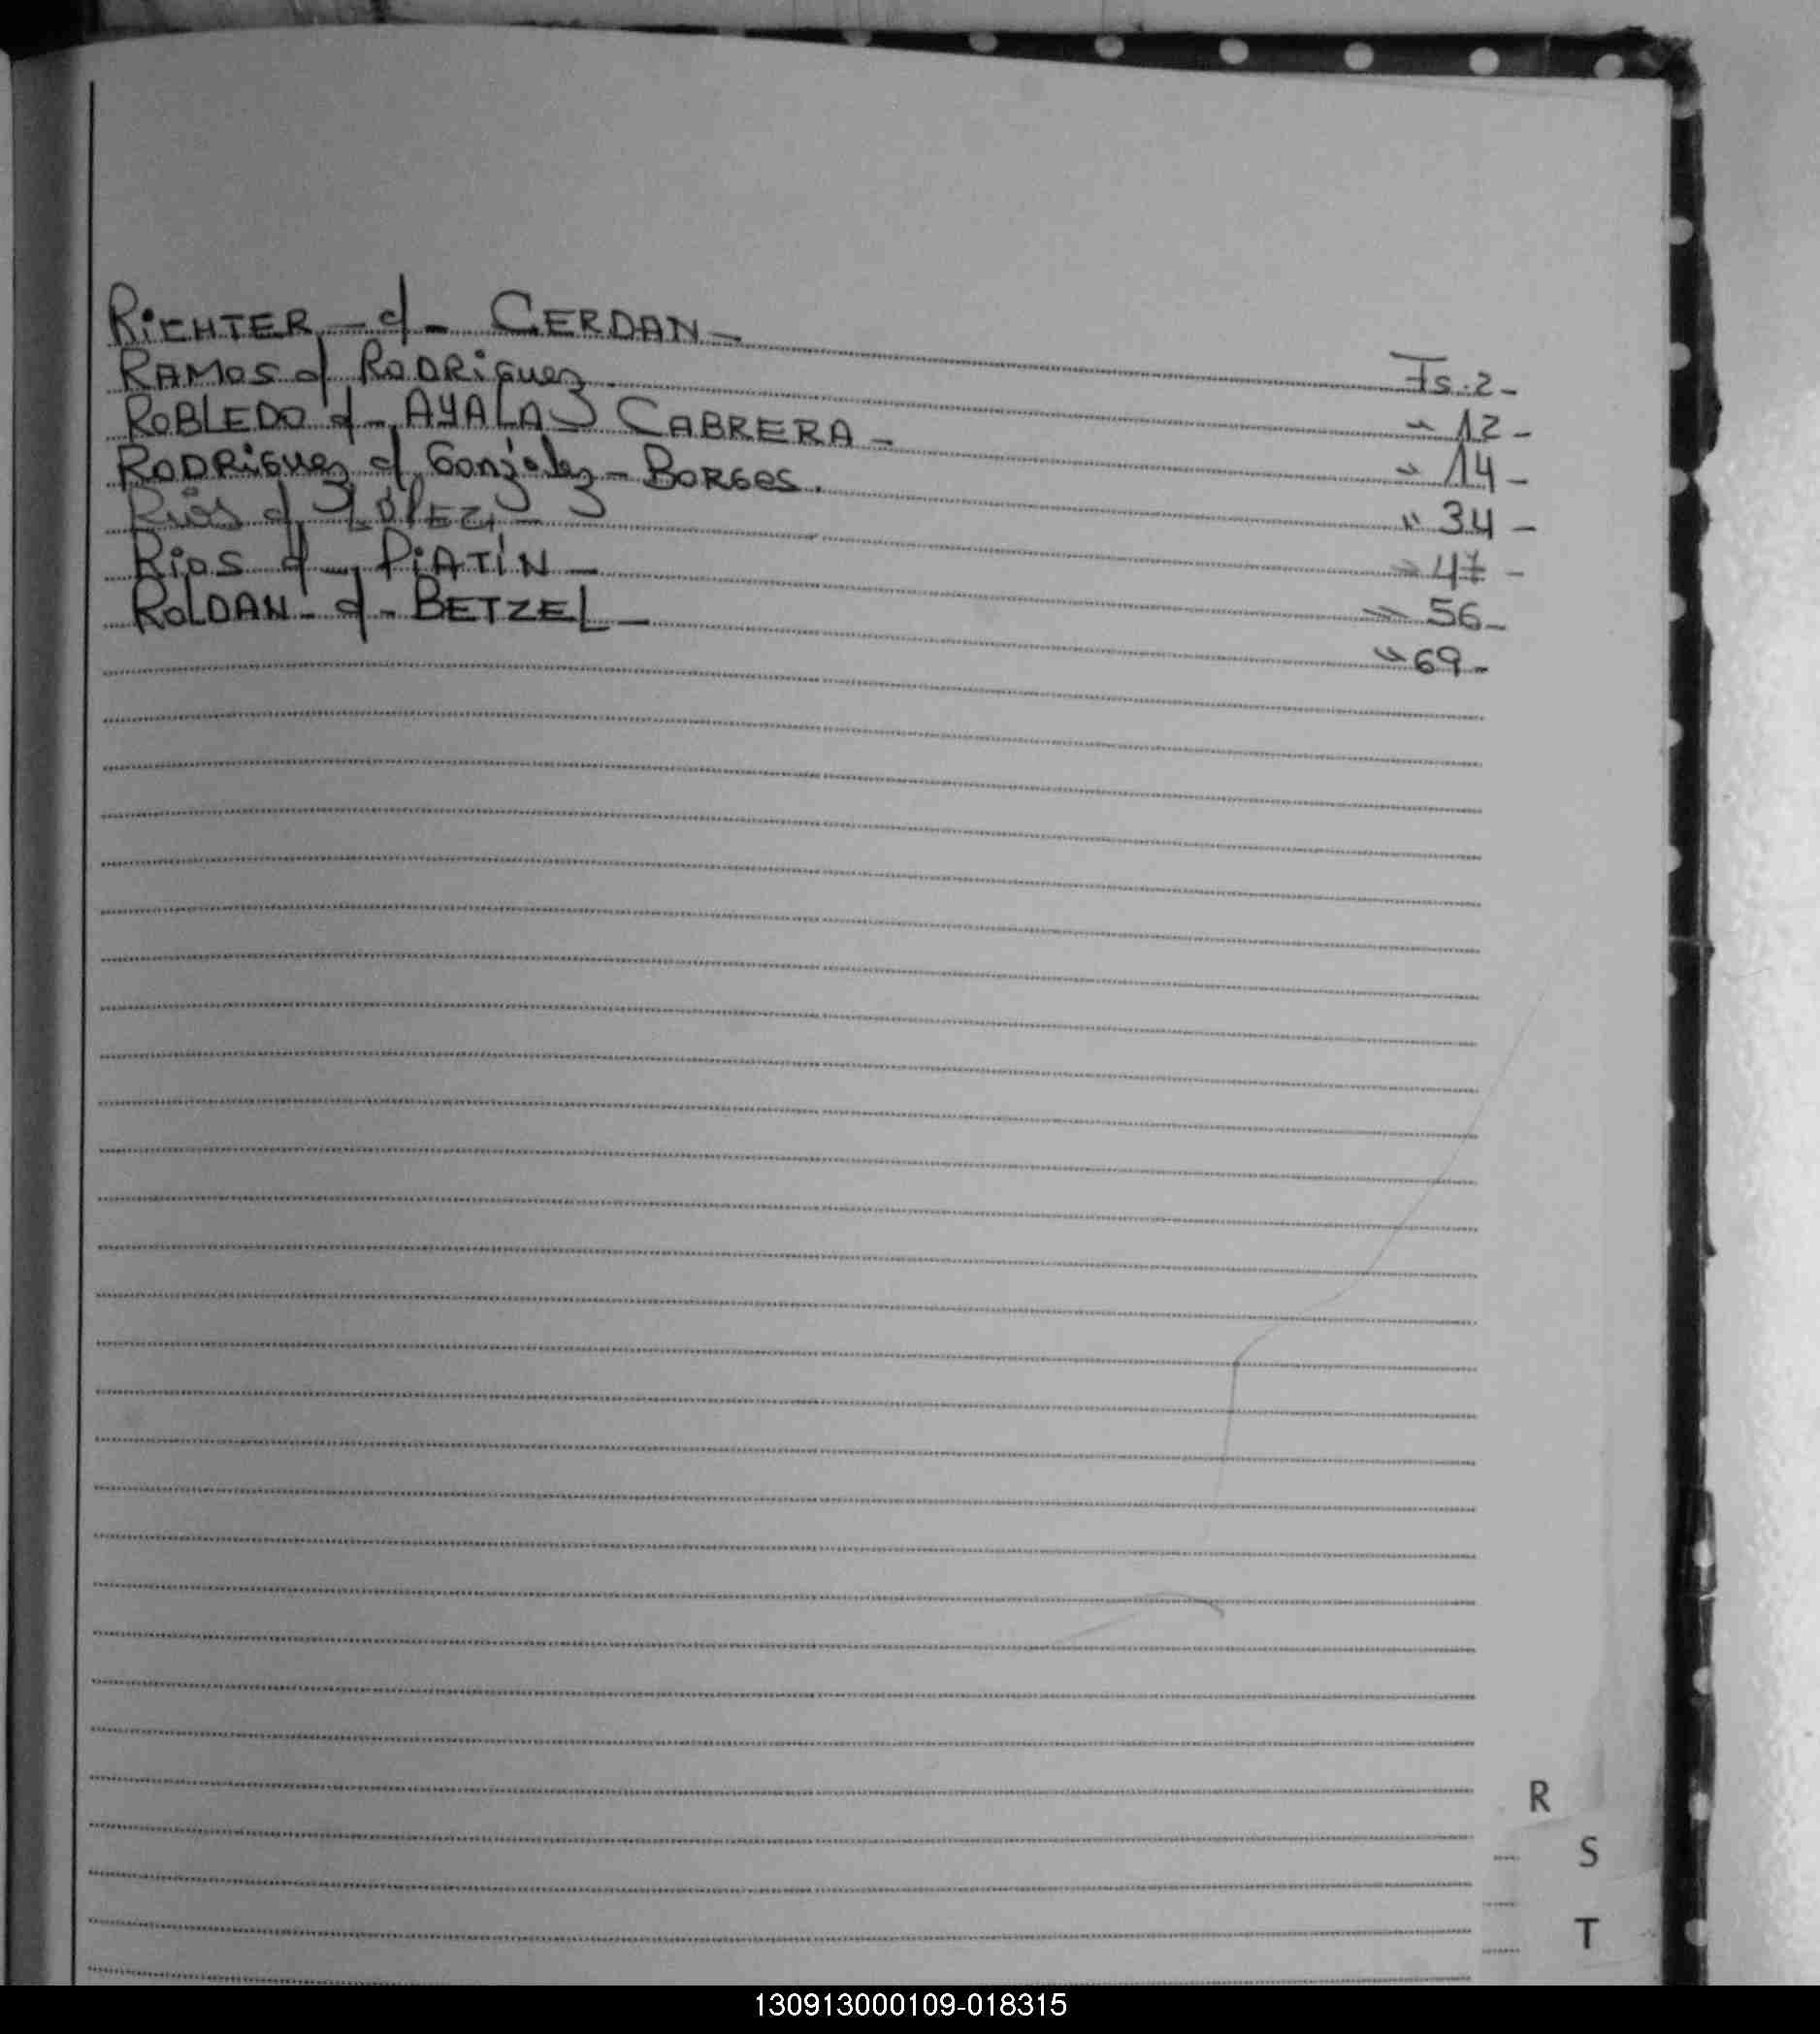 RiCHTER - c/ - CERDAN - Fs. 2 -
RAMOS c/ RODRiGuez. " 12 -
ROBLEDO c/ - AYALA CABRERA - " 14 -
RODRiGuez c/ Gonzalez - BORGes. " 34 -
Ríos c/ LÓPEZ - " 47 -
Rios c/ - PiATíN - " 56 -
ROLDAN - c/ - BETZEL - " 69 -
R
S
T
130913000109-018315